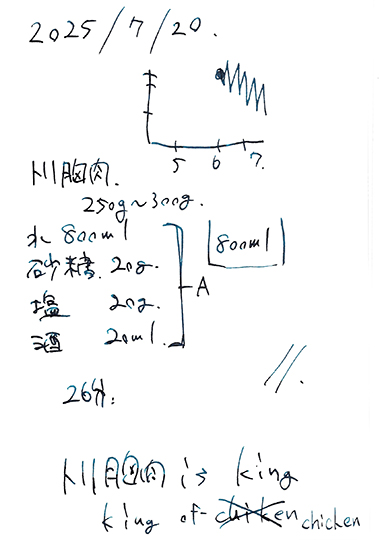 2025/7/20.
5 6 7.
トリ胸肉.
250g~300g.
水 800ml
800ml
砂糖. 20g.
A
塩 20g.
酒 20ml.
26分.
トリ胸肉 is king
king of chicken chicken